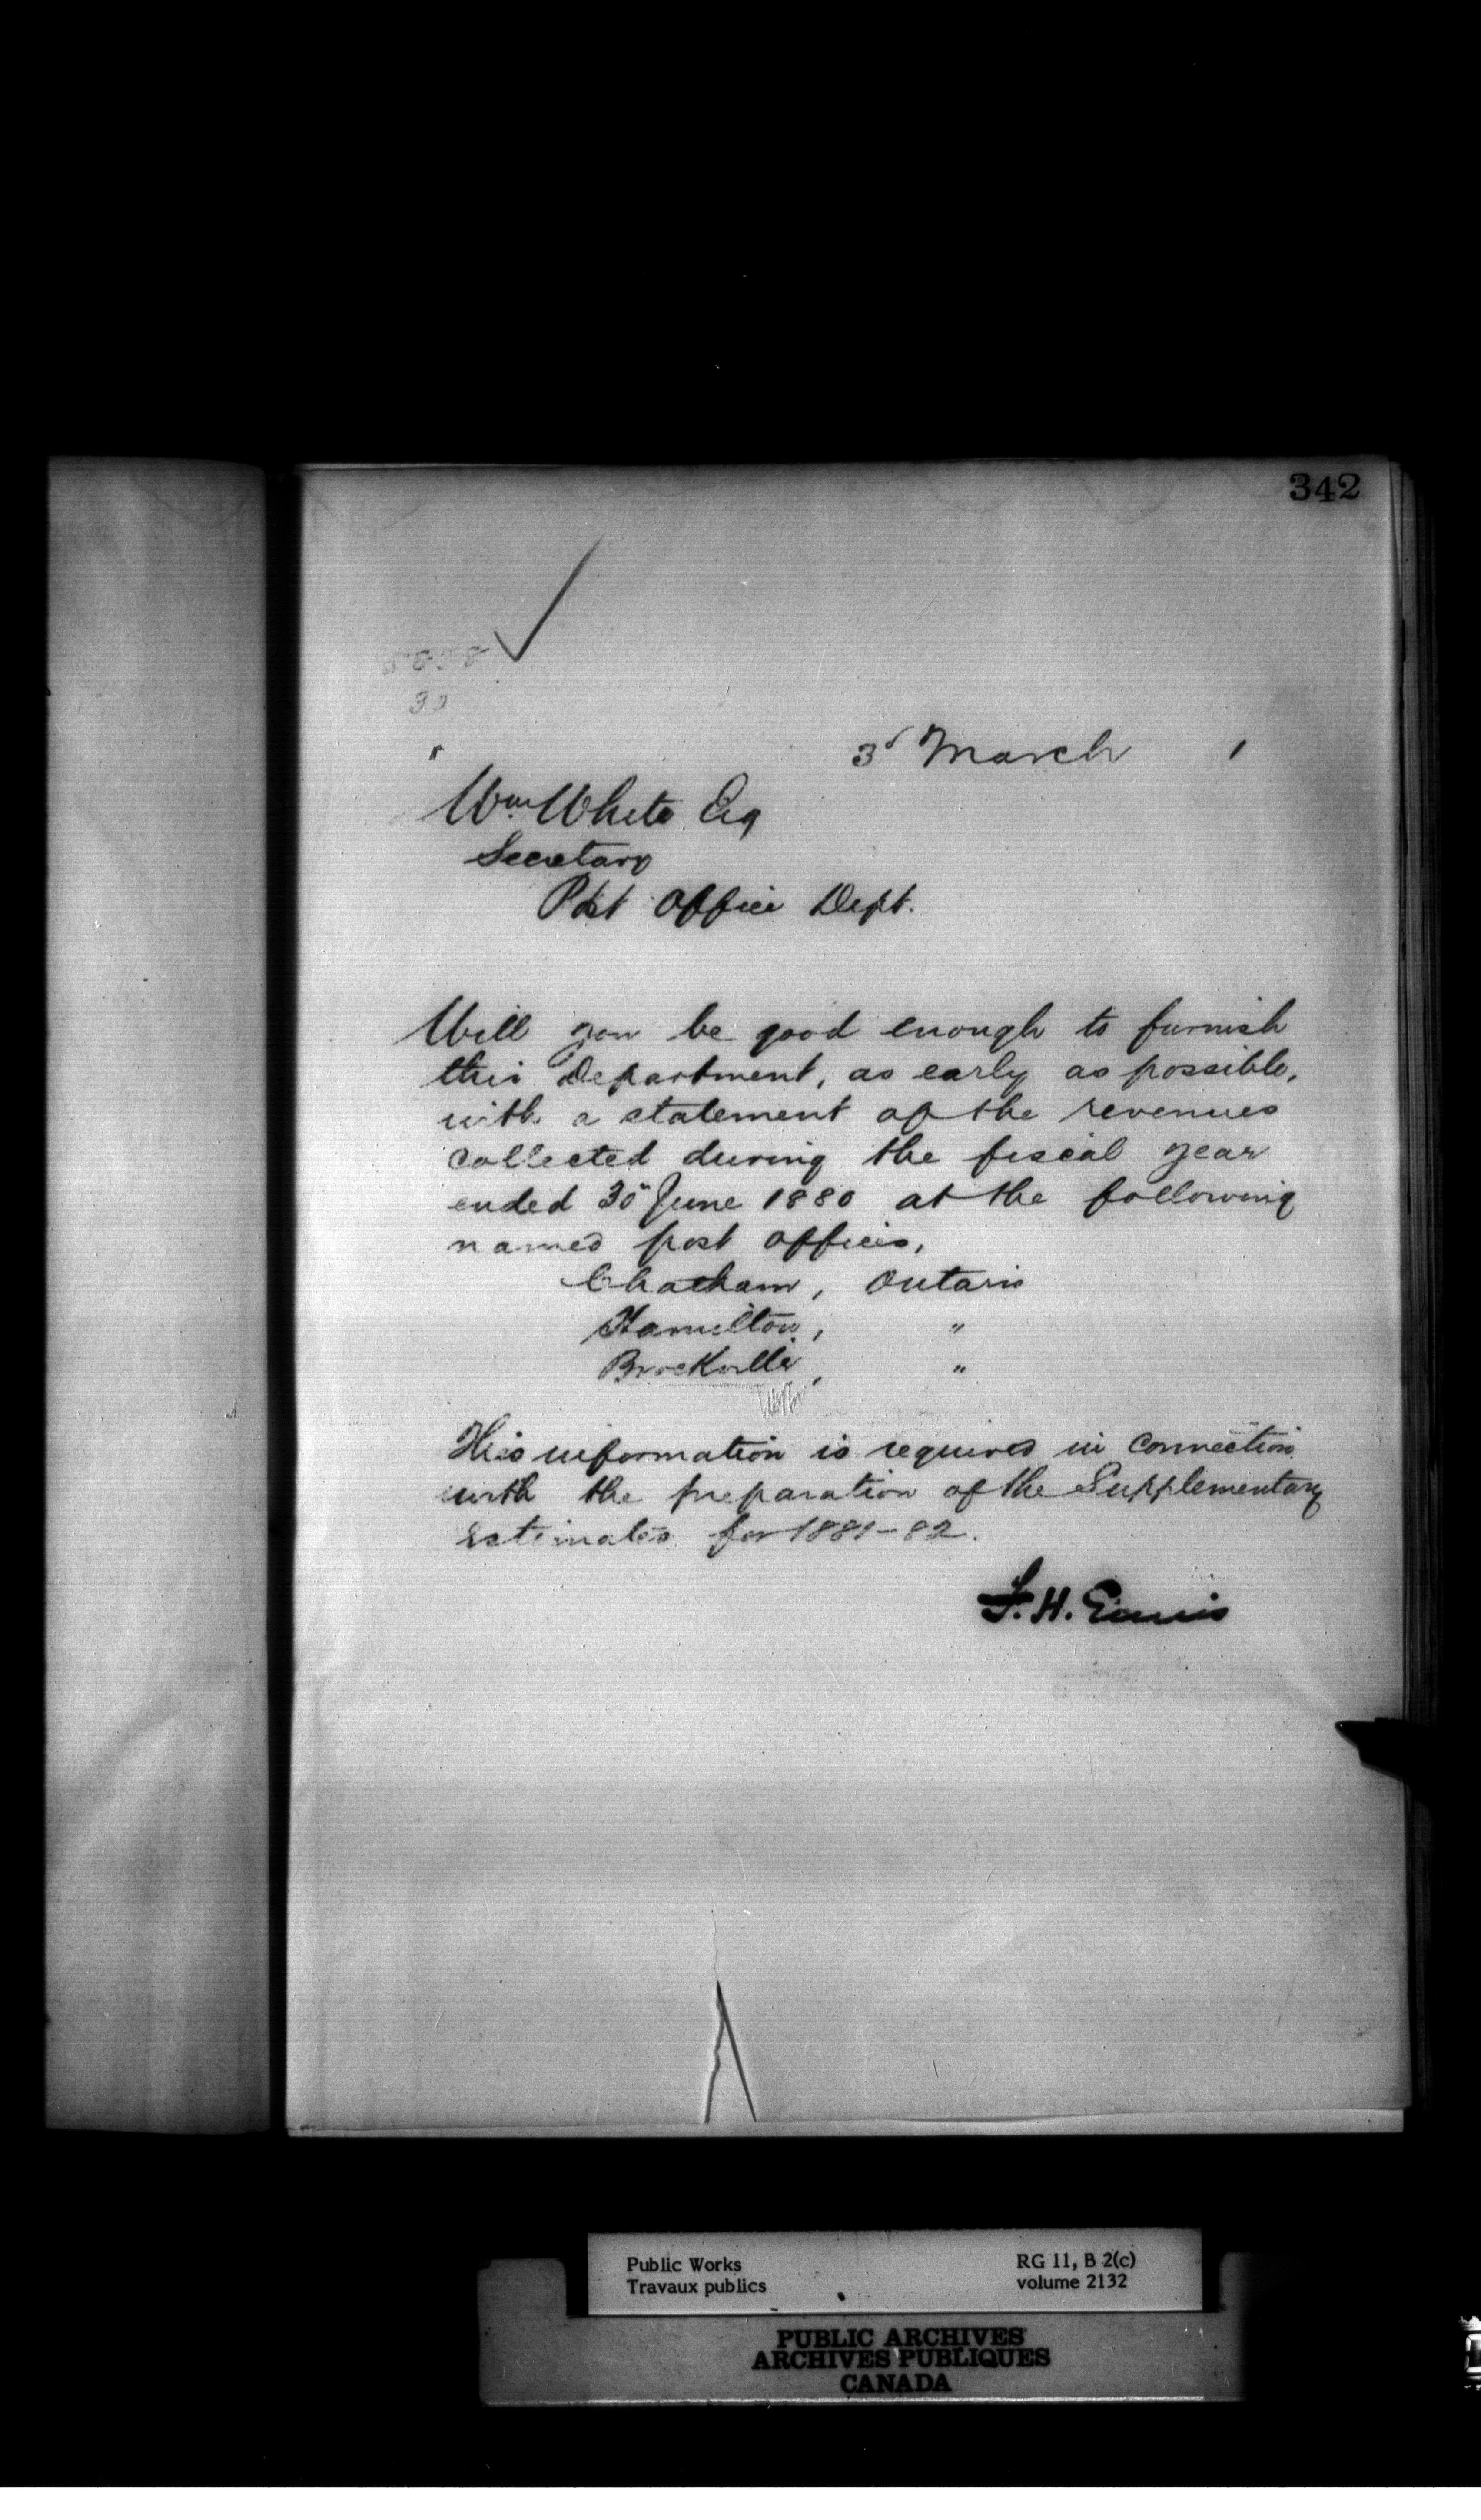 342
3d March 1
Wm. White Esq
Secretary
Post Office Dept.
Will you be good enough to furnish
this Department, as early as possible,
with a statement of the revenues
collected during the fiscal year
ended 30 June 1880 at the following
named post offices,
Chatham, Ontario
Hamilton, "
Brockville, "
This information is required in connection
with the preparation of the Supplementary
Estimates for 1881-82.
F. H. Ennis
Public Works
Travaux publics
RG 11, B 2(c)
volume 2132
PUBLIC ARCHIVES
ARCHIVES PUBLIQUES
CANADA